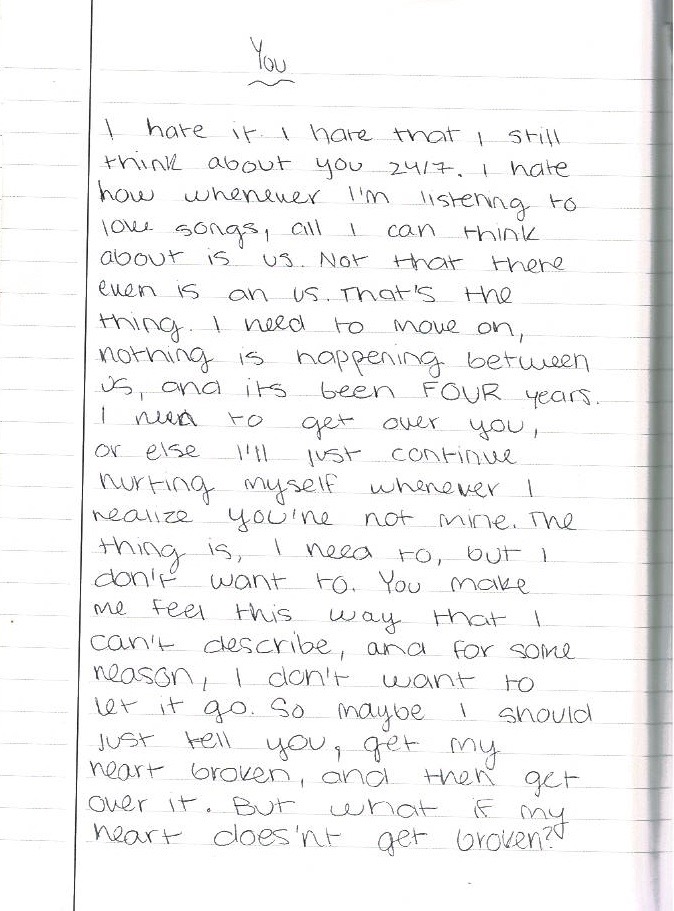 You
I hate it. I hate that I still
think about you 24/7. I hate
how whenever I'm listening to
love songs, all I can think
about is us. Not that there
even is an us. That's the
thing. I need to move on,
nothing is happening between
us, and its been FOUR years.
I need to get over you,
or else I'll just continue
hurting myself whenever I
realize you're not mine. The
thing is, I need to, but I
don't want to. You make
me feel this way that I
can't describe, and for some
reason, I don't want to
let it go. So maybe I should
just tell you, get my
heart broken, and then get
over it. But what if my
heart does'nt get broken?